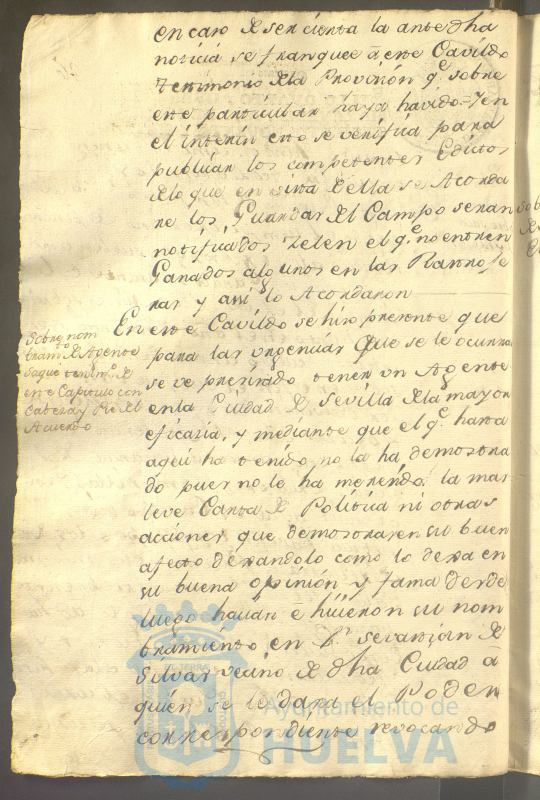 en caso de ser cierta la antedha
noticia se franquee a este Cavildo
testimonio de la Provision qe. sobre
este particular haya havido = Y en
el interin esto se verifica para
publicar los competentes Edictos
de lo que en vista de ella se Acorda
re los Guardas del Campo seran
notificados zelen el qe. no entren
Ganados algunos en las Rastroje
ras y assi lo Acordaron
En este Cavildo se hizo presente que
para las urgencias que se le ocurran
se ve presizado tener un Agente
en la Ciudad de Sevilla de la mayor
eficazia, y mediante que el qe. hasta
aqui ha tenido no la ha demostra
do pues no le ha merecido la mas
leve Carta de Politica ni otras
acciones que demostrasen su buen
afecto dexandolo como lo dexa en
su buena opinión y fama desde
luego havian e hicieron su nom
bramiento en Dn. Sevastian de
Silvar vecino de dha Ciudad á
quien se le dara el Poder
correspondiente revocando
Sobre nom
bram.to de Agente
saque testim.o de
este Capitulo con
Cabeza y Pie del
Acuerdo
Ayuntamiento de
HUELVA